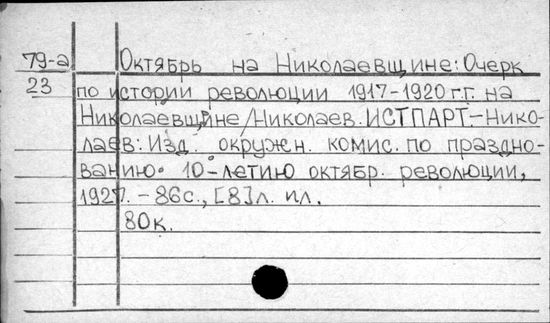 79-а Октябрь на Николаевщине: Очерк
23 по истории революции 1917-1920 г.г. на
Николаевщине/Николаев. ИСТПАРТ.-Нико-
лаев: Изд. окружн. комис. по праздно-
ванию 10-летию октябр. революции,
1927. - 86с., [8]л. ил.
80к.